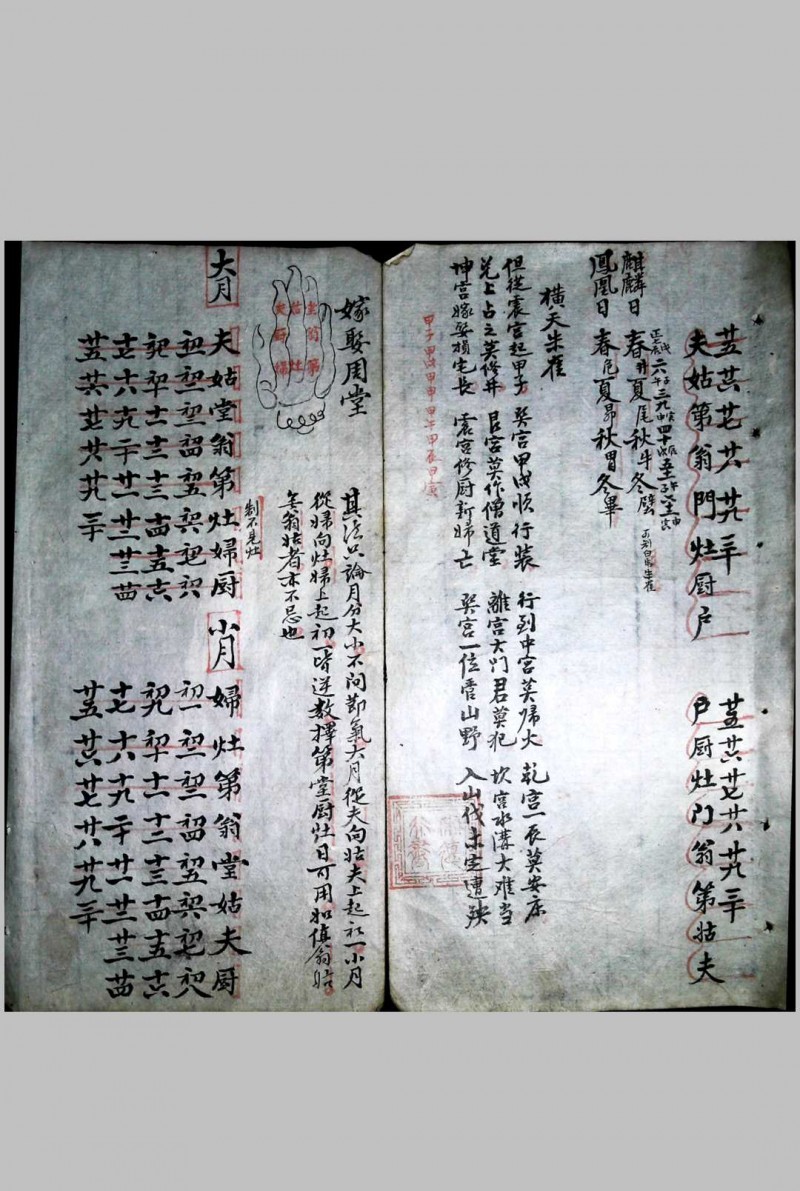 廿五 廿六 廿七 廿八 廿九 三十 廿五 廿六 廿七 廿八 廿九 三十
夫姑第翁門灶厨户 户厨灶门翁第姑夫
麒麟日 春井夏尾秋牛冬壁
鳳凰日 春危夏昴秋胃冬畢
横天朱雀
但從震宫起甲子 巽宫甲戌順行裝 行到中宫莫归火 乾宫一辰莫安床
兑上占之莫修井 艮宫莫作僧道堂 離宫大门君莫犯 坎宫水溝大难当
坤宫嫁娶損宅長 震宫修厨新婦亡 巽宫一位管山野 入山伐木定遭殃
甲子甲戌甲申甲午甲辰甲寅
嫁娶周堂
堂翁第
姑 灶
夫厨婦
其法只論月分大小不问節氣大月從夫向姑夫上起初一小月
從婦向灶婦上起初一皆逆数擇第堂厨灶日可用如值翁姑
無翁姑者亦不忌也
大月
夫姑堂翁第灶婦厨
初一 初二 初三 初四 初五 初六 初七 初八
初九 初十 十一 十二 十三 十四 十五 十六
十七 十八 十九 二十 廿一 廿二 廿三 廿四
廿五 廿六 廿七 廿八 廿九 三十
小月
婦灶第翁堂姑夫厨
初一 初二 初三 初四 初五 初六 初七 初八
初九 初十 十一 十二 十三 十四 十五 十六
十七 十八 十九 二十 廿一 廿二 廿三 廿四
廿五 廿六 廿七 廿八 廿九 三十